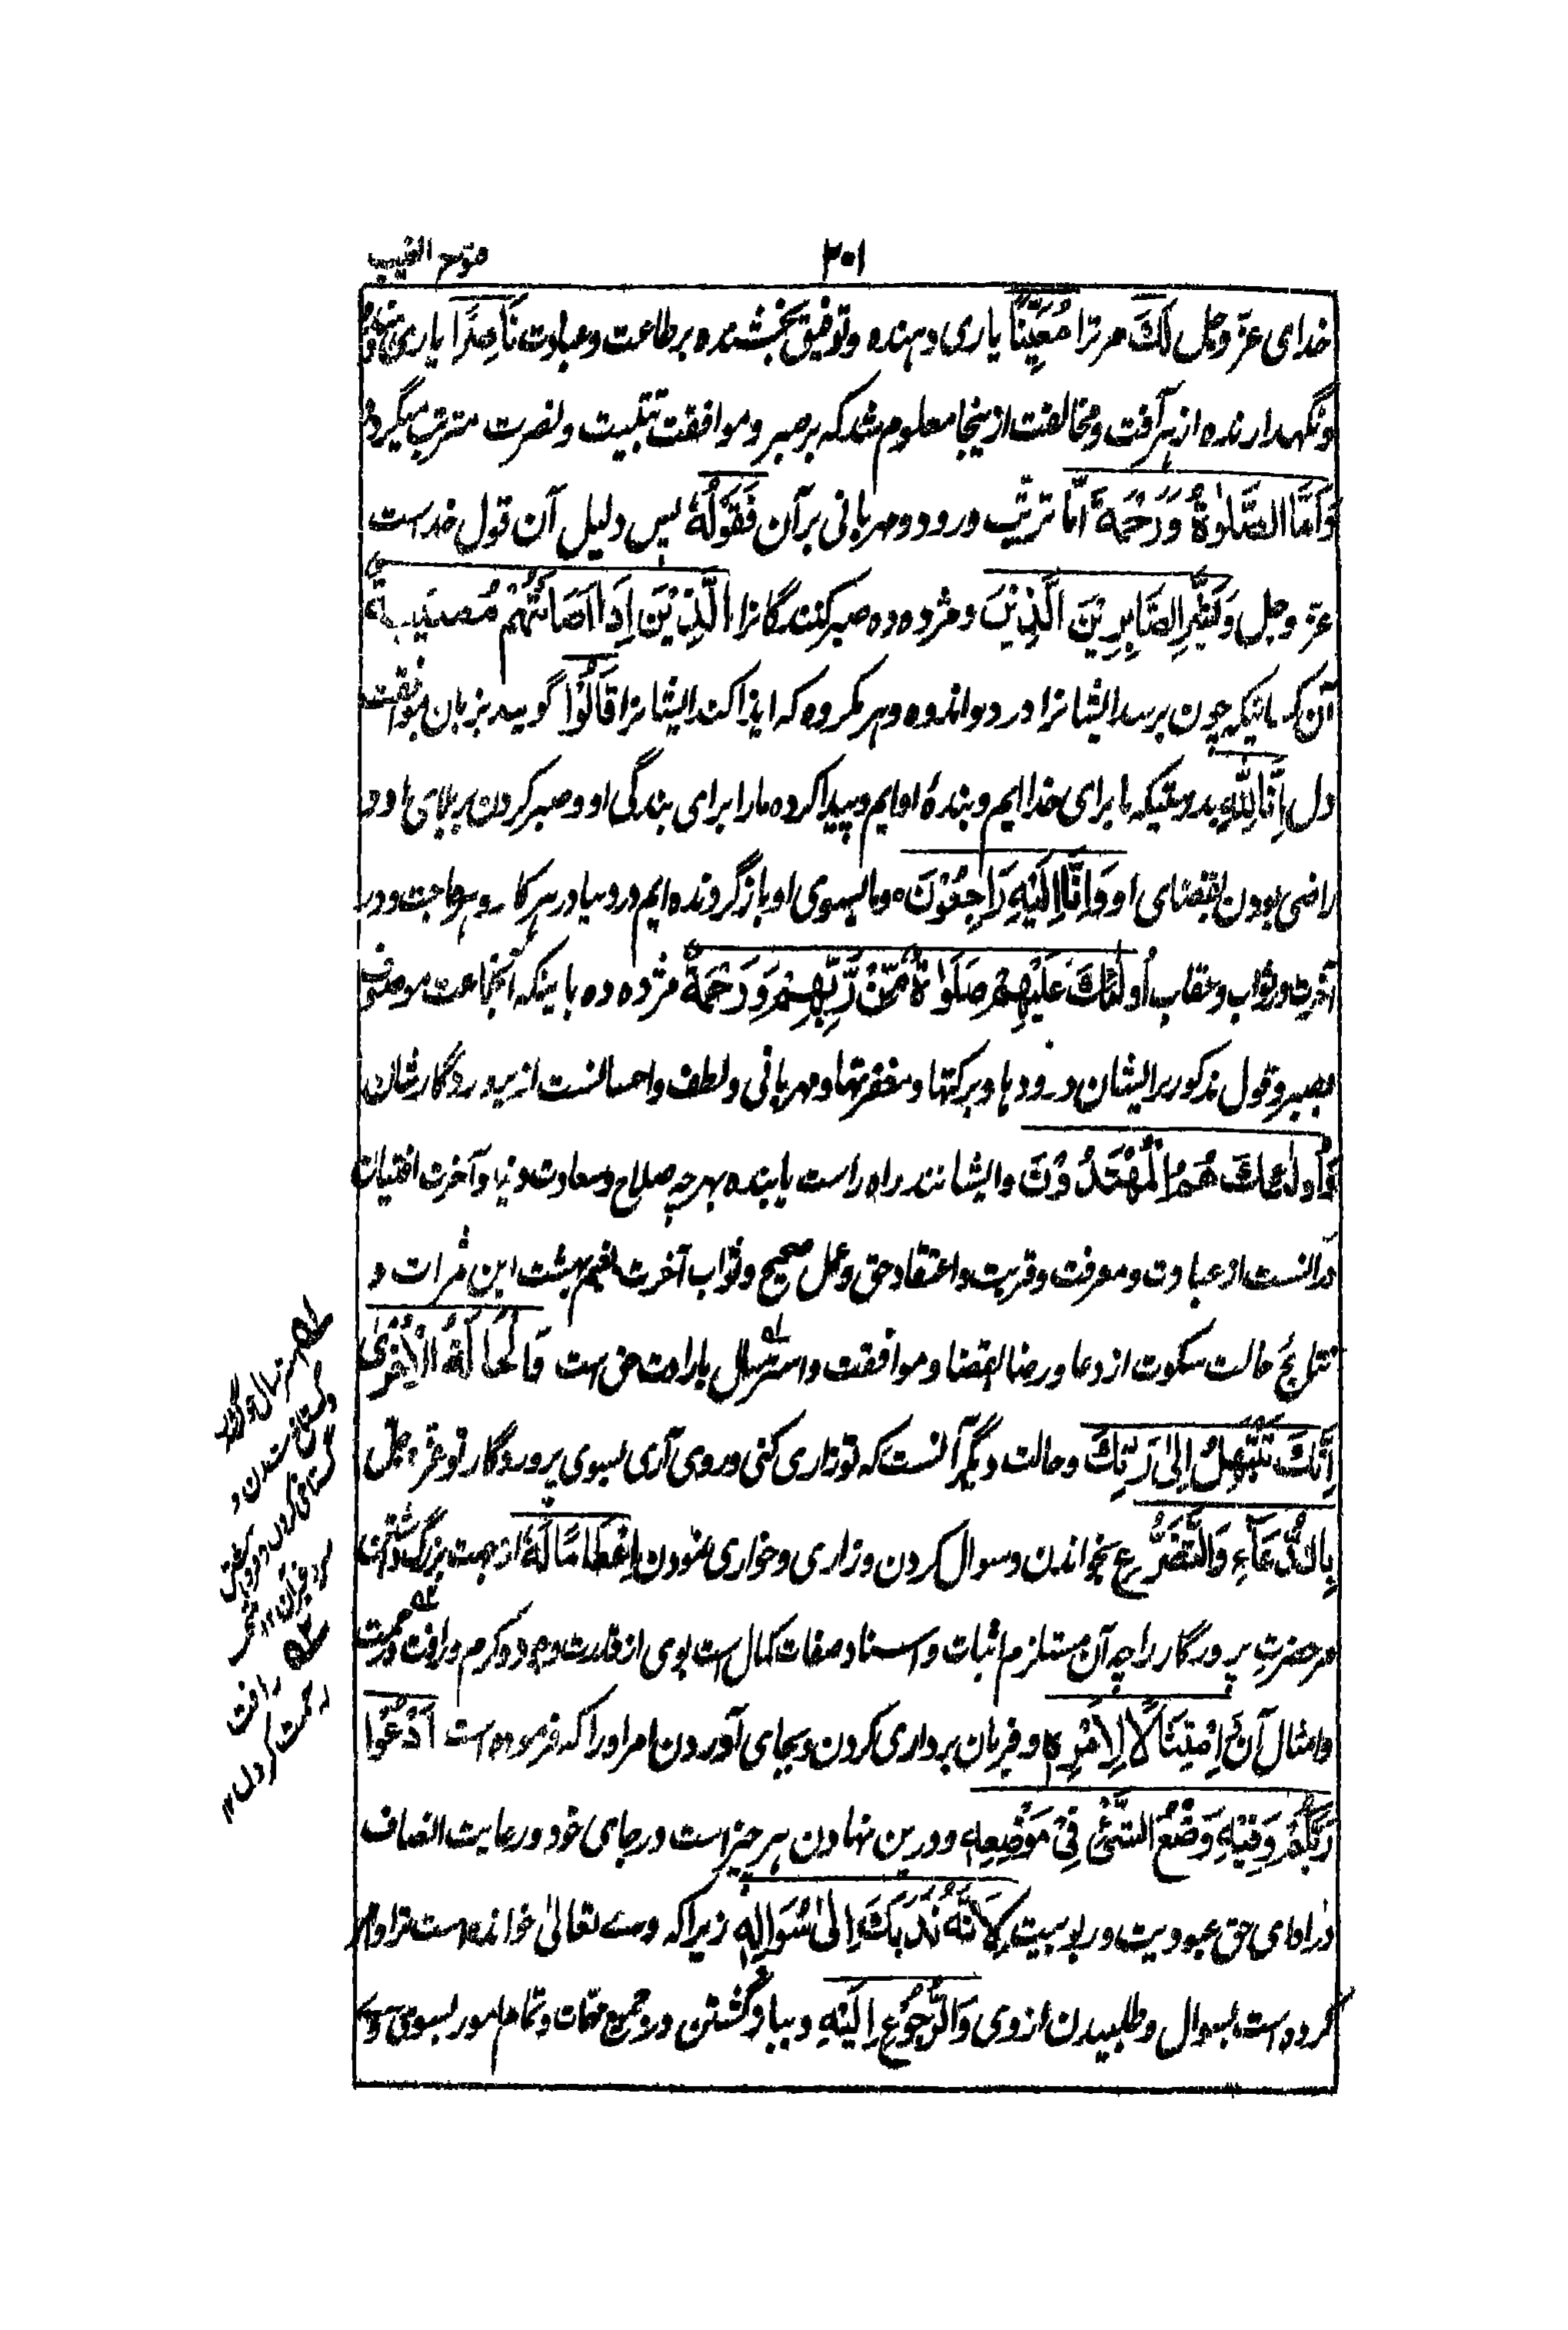 ۳۰۱
فتوح الغیب
خدای عزّ وجل لَكَ مرترا مُعِیْنًا یاری دهنده وتوفیق بخشنده بر طاعت وعبادت نَاصِرًا یاری
ونگهدارنده از هر آفت ومخالفت ازینجا معلوم شد که بر صبر وموافقت تثبیت ونصرت مترتب میگردد
وَاَمَّا الصَّلٰوةُ وَرَحْمَةٌ امّا ترتّب درود ومهربانی بر آن فَقَوْلُهٗ پس دلیل آن قول خداست
عزّ وجل وَبَشِّرِ الصَّابِرِیْنَ الَّذِیْنَ ومژده ده صبر کنندگانرا الَّذِیْنَ اِذَا اَصَابَتْهُمْ مُصِیْبَةٌ
آن کسانیکه چون برسد ایشانرا درد واندوه وهر مکروه که ایذا کند ایشانرا قَالُوْا گویند بزبان بموافقت
دل اِنَّا لِلّٰهِ بدرستیکه ما برای خدا ایم وبندهٔ او ایم وپیدا کرده ما را برای بندگی او وصبر کردن بر بلای او و
راضی بودن بقضای او وَاِنَّا اِلَیْهِ رَاجِعُوْنَ ومابسوی او باز گردنده ایم در دنیا در هر کار وهر حاجت ودر
آخرت در ثواب وعقاب اُولٰئِكَ عَلَیْهِمْ صَلَوَاةٌ مِّنْ رَّبِّهِمْ وَرَحْمَةٌ مژده ده باینکه آنجماعت موصوف
بصبر وقول مذکور بر ایشان درودها وبرکتها ومغفرتها ومهربانی ولطف واحسانست از پروردگار شان
وَاُولٰئِكَ هُمُ الْمُهْتَدُوْنَ وایشانند راه راست یابنده بهر چه صلاح وسعادت دنیا وآخرت ایشان
در آنست از عبادت ومعرفت وقربت واعتقاد حق وعمل صحیح وثواب آخرت نعیم بهشت این ثمرات و
نتایج حالت سکوت از دعا ورضا بقضا وموافقت واسترسال بارادت حق ست وَالْحَالَةُ الْاُخْرٰی
اِنَّكَ تَبْتَهِلُ اِلٰی رَبِّكَ وحالت دیگر آنست که تو زاری کنی وروی آری بسوی پروردگار تو عزّ وجلّ
بِالدُّعَآءِ وَالتَّضَرُّعِ بخواندن وسوال کردن وزاری وخواری نمودن اِعْظَامًا لَّهٗ از جهت بزرگ داشتن
مر حضرتِ پروردگار را چه آن مستلزم اثبات واسناد صفات کمال است بوی از قدرت وجود وکرم ورافت ورحمت
وامثال آن اِمْتِثَالًا لِاَمْرِهٖ وفرمان برداری کردن وبجای آوردن امر او را که فرموده است اُدْعُوْا
رَبَّكُمْ وَفِیْهِ وَضْعُ الشَّیْئِ فِیْ مَوْضِعِهٖ ودرین نهادن هر چیز است در جای خود ورعایت انصاف
در ادای حق عبودیت وربوبیت لِاَنَّهٗ نَدَبَكَ اِلٰی سُوَالِهٖ زیرا که وے تعالیٰ خوانده است ترا وامر
کرده است بسوال وطلبیدن از وی وَالرُّجُوْعِ اِلَیْهِ وبباز گشتن در جمیع مهمات وتمام امور بسوی وے
رافت
رحمت کردن ۱۲